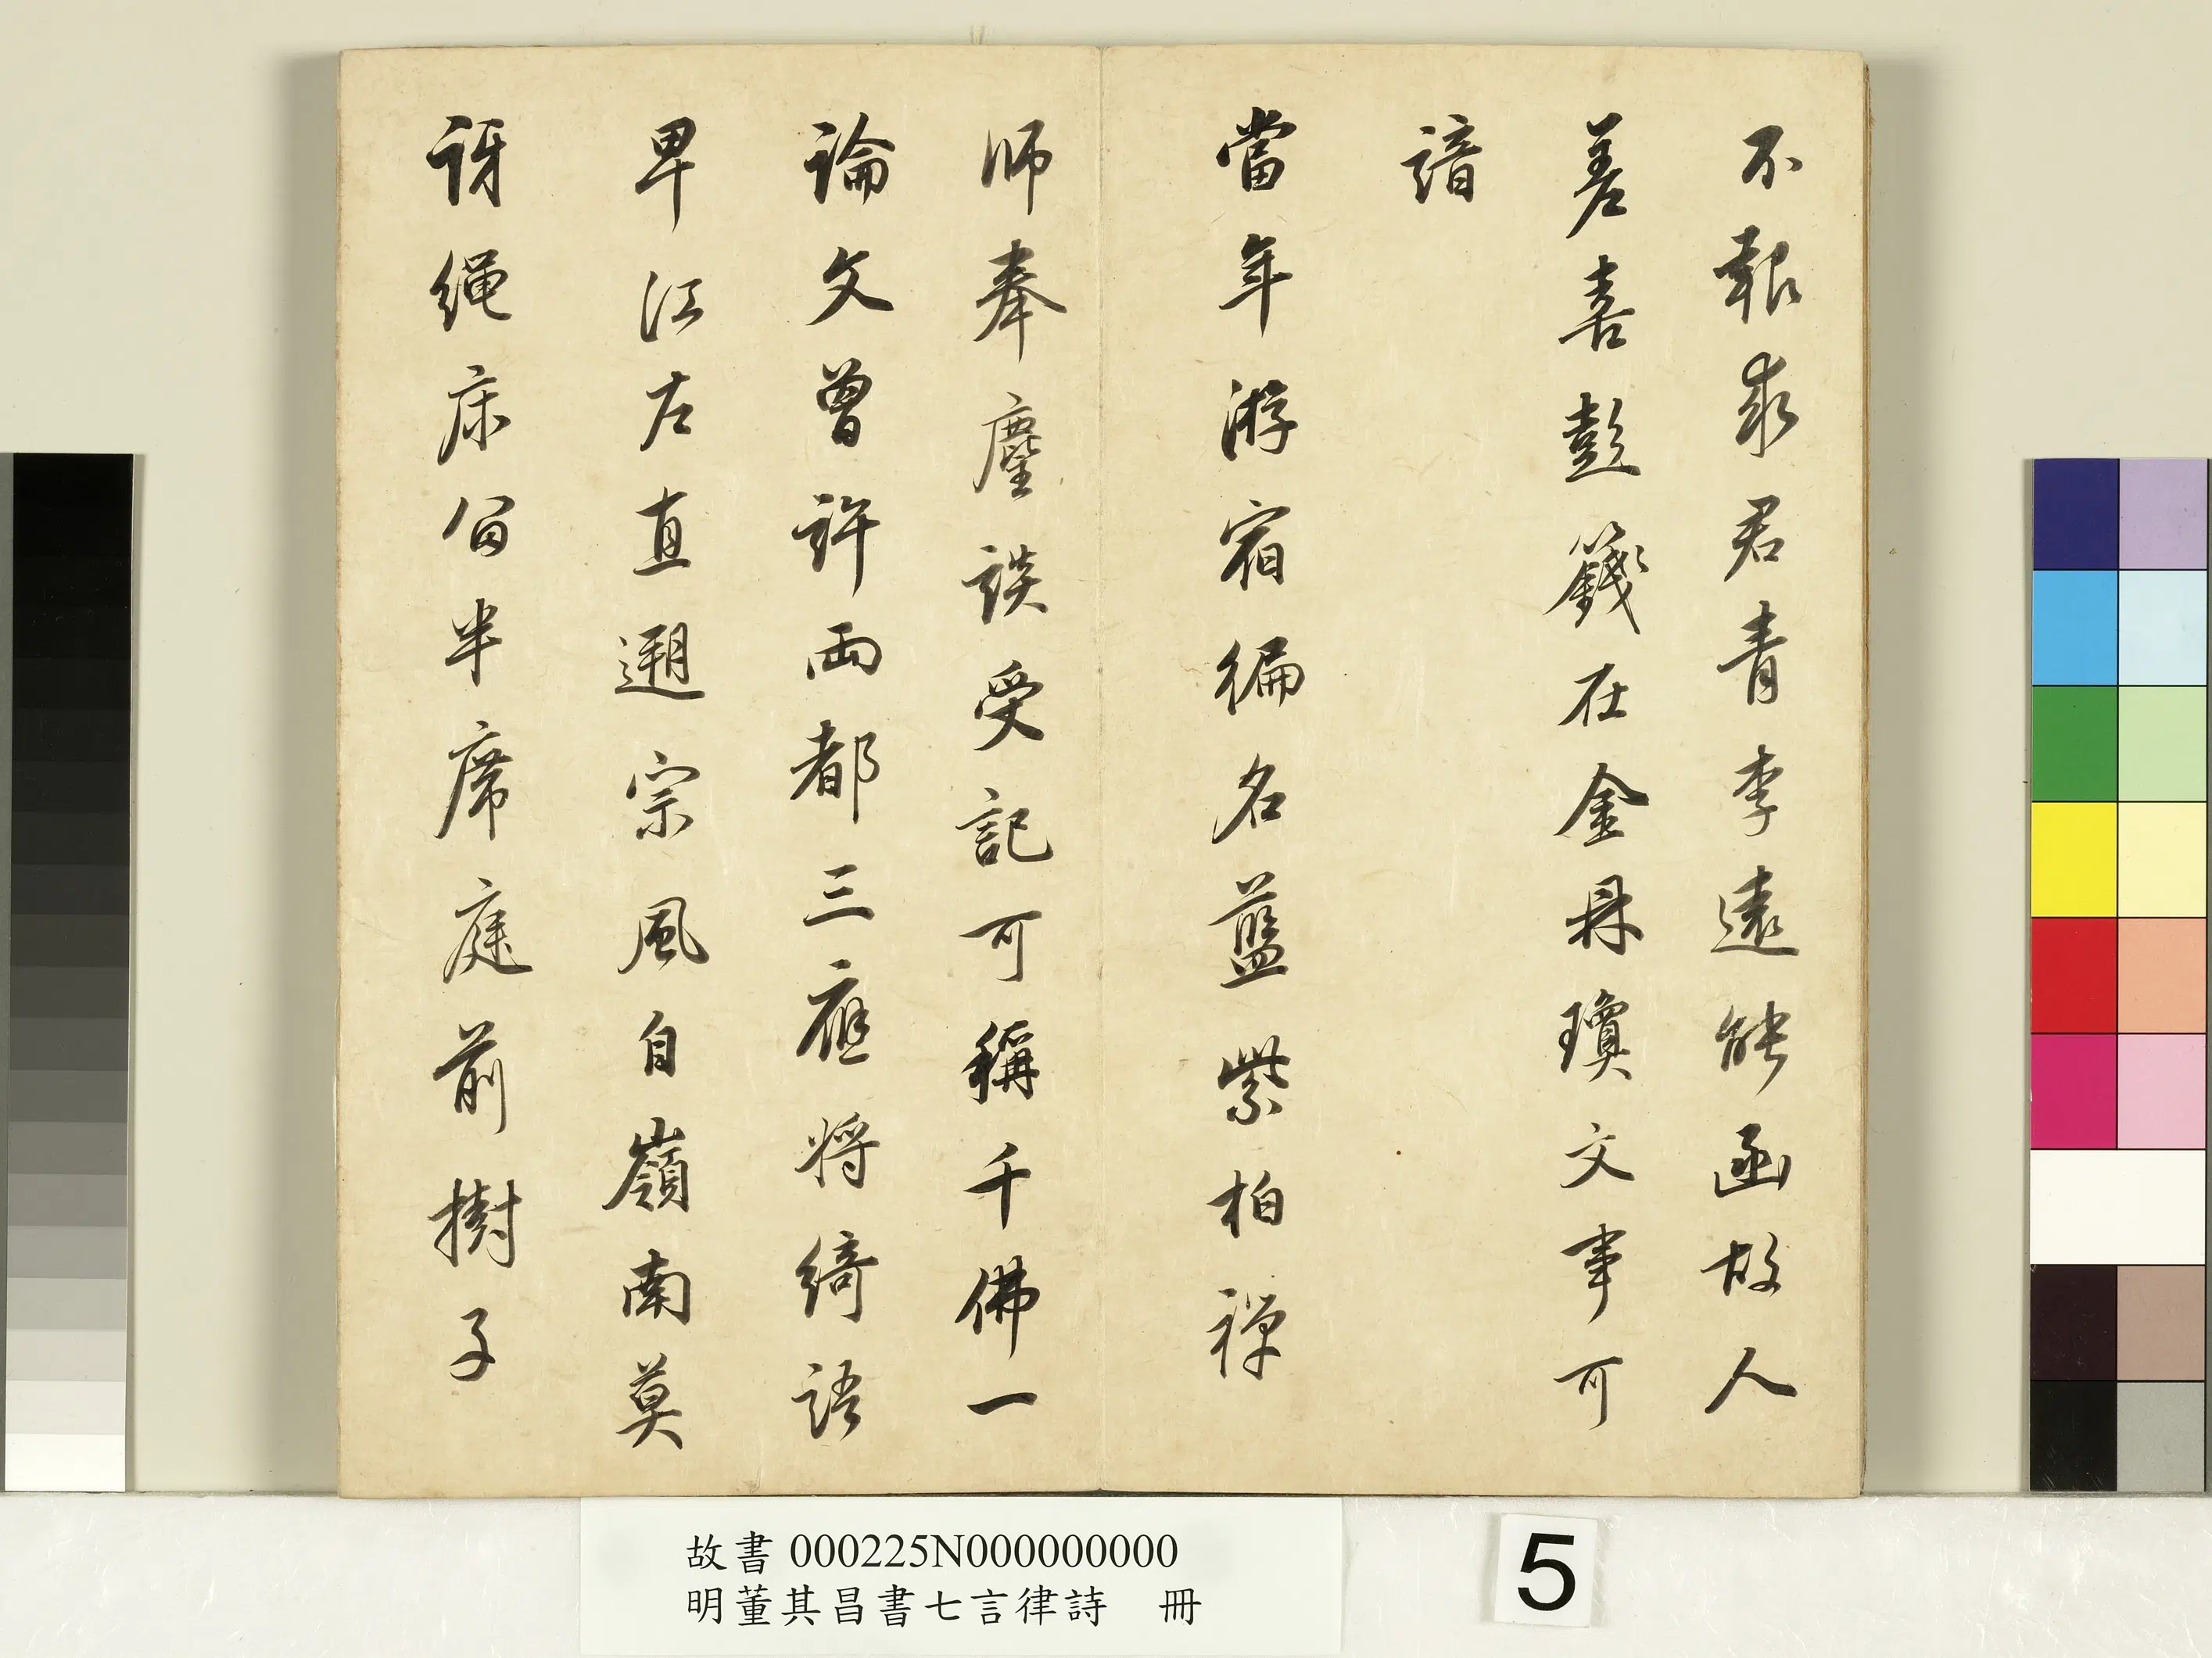 不報求君青李遠能函故人
差喜彭籛在金丹瓊文事可
諳
當年游宿徧名藍紫柏禪
師奉麈談受記可稱千佛一
論文曾許兩都三應將綺語
卑江左直遡宗風自嶺南莫
訝繩床留半席庭前樹子
故書 000225N000000000
明董其昌書七言律詩 冊
5